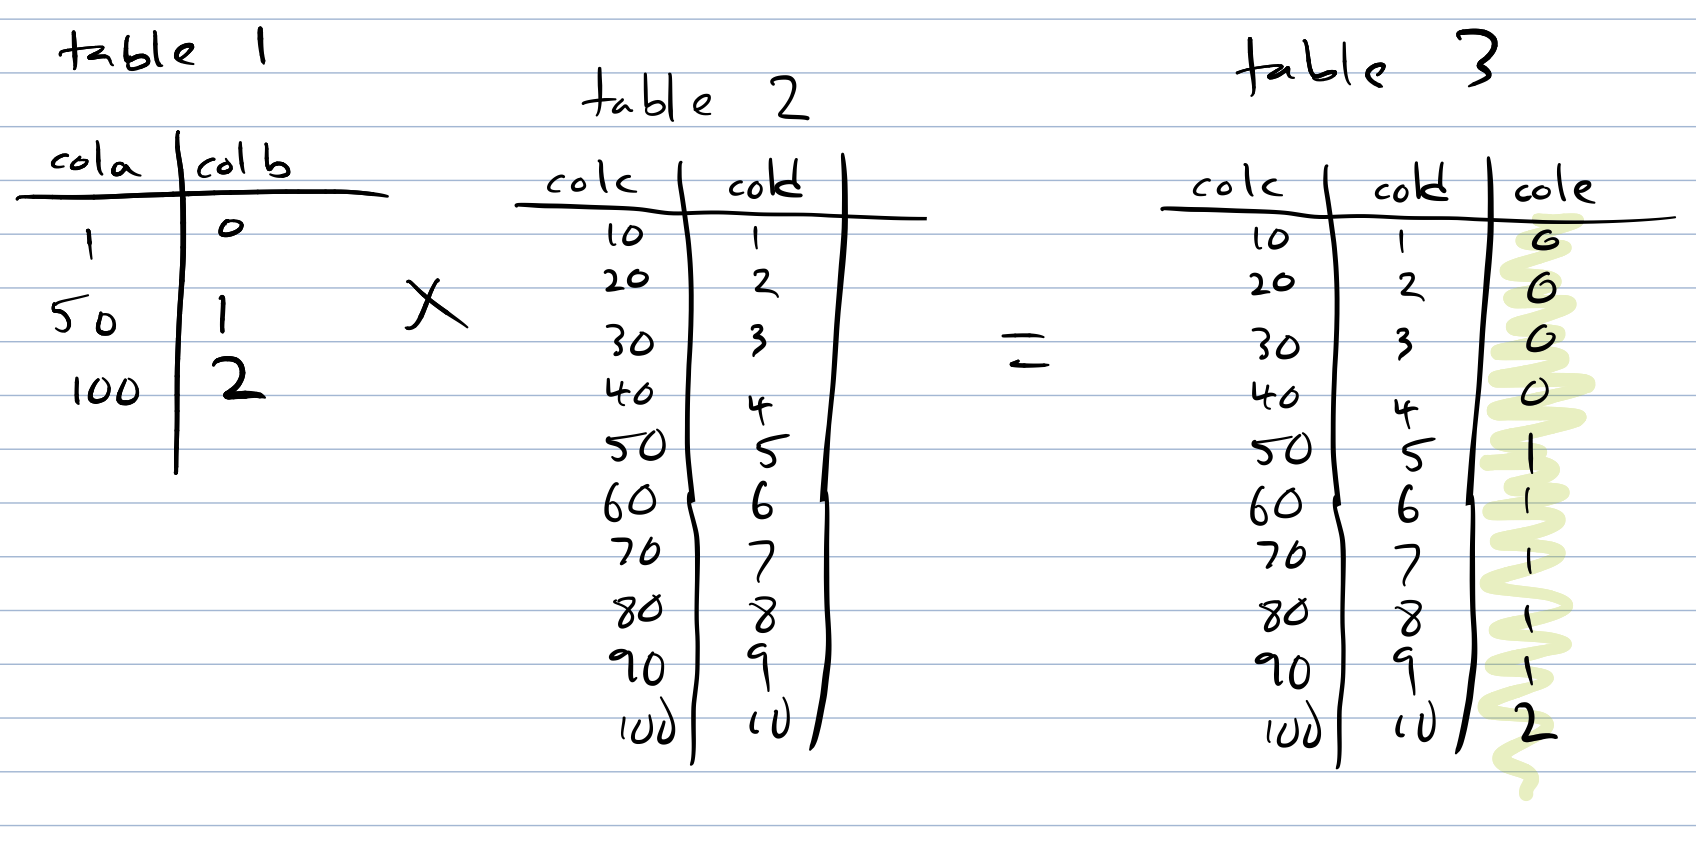 table 1
cola colb
1 0
50 1
100 2
X
table 2
colc cold
10 1
20 2
30 3
40 4
50 5
60 6
70 7
80 8
90 9
100 10
=
table 3
colc cold cole
10 1 0
20 2 0
30 3 0
40 4 0
50 5 1
60 6 1
70 7 1
80 8 1
90 9 1
100 10 2